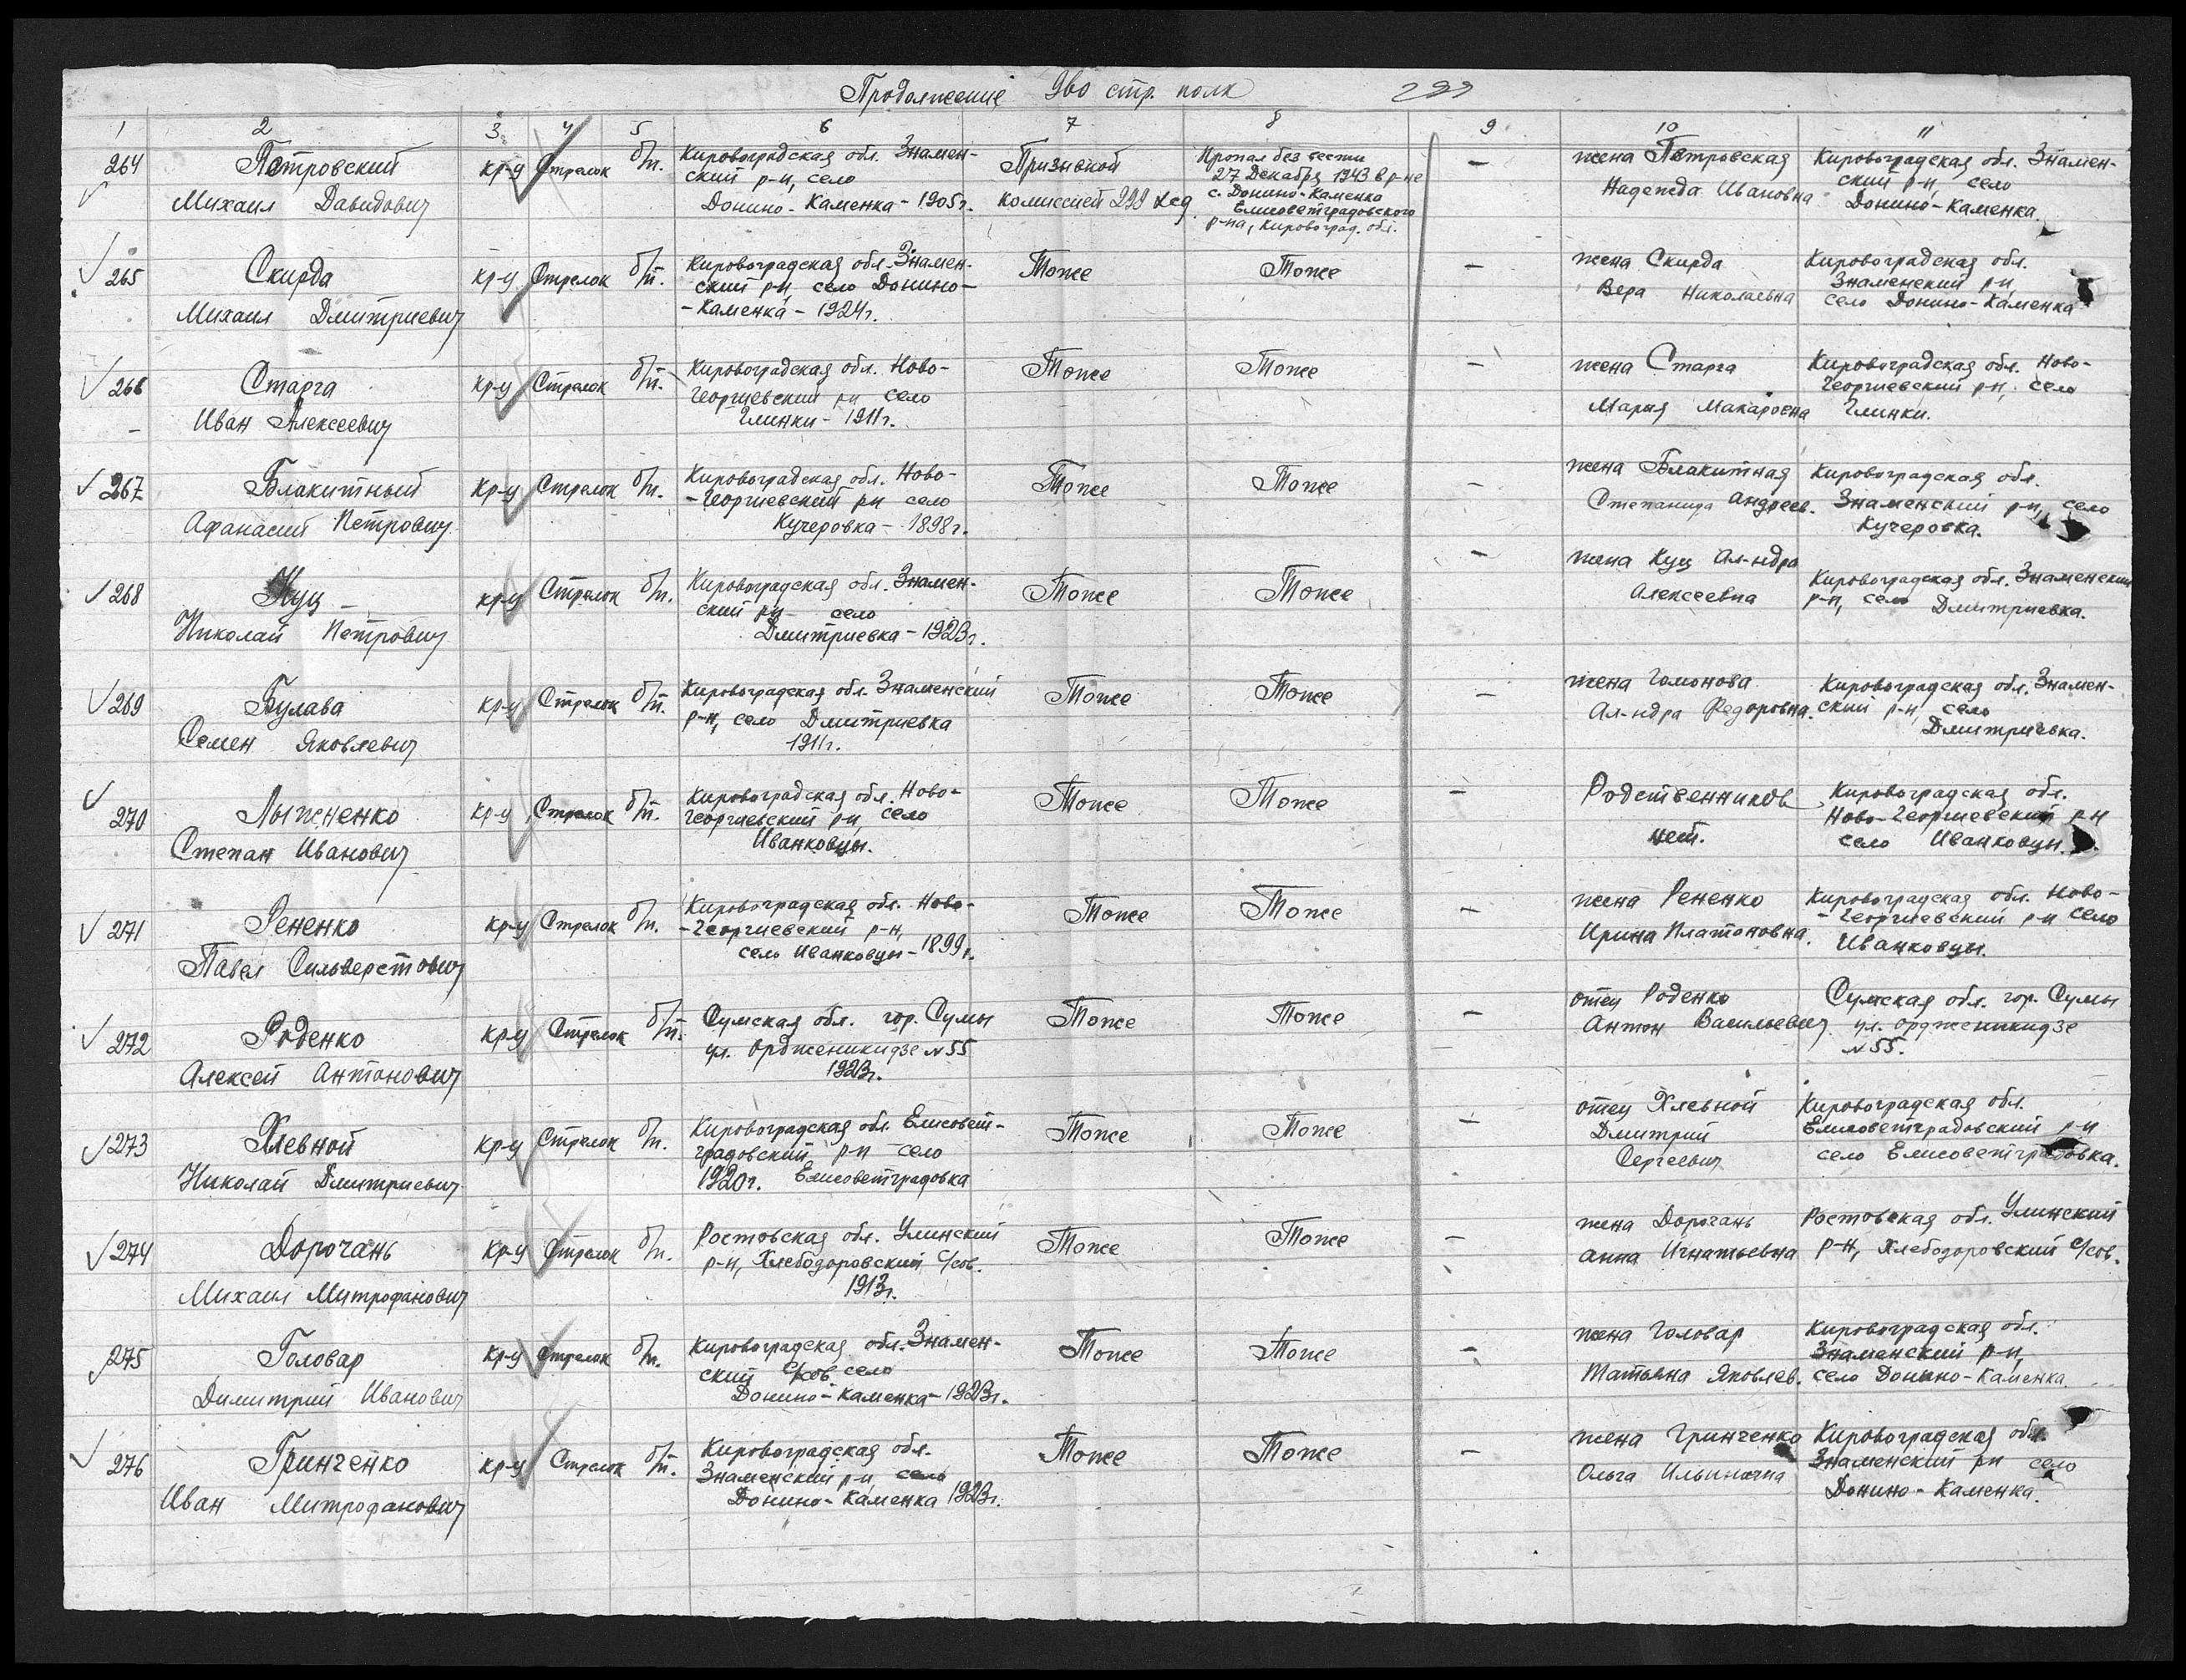 Продолжение 960 стр. полк
1 2 3 4 5 6 7 8 9 10 11
264 Петровский Михаил Давидович
кр-ц
Стрелок
б/п.
Кировоградская обл. Знамен-
ский р-н, село
Донино-Каменка - 1905г.
Призывной
комиссией 299 ксд
Пропал без вести
27 Декабря 1943 в р-не
с. Донино-Каменко
Елисоветградовского
р-на, Кировоград. обл.
—
жена Петровская
Надежда Ивановна
Кировоградская обл. Знамен-
ский р-н, село
Донино-Каменка.
265 Скирда
Михаил Дмитриевич
кр-ц
Стрелок
б/п.
Кировоградская обл. Знамен-
ский р-н, село Донино-
-Каменка - 1924г.
Тоже
Тоже
—
жена Скирда
Вера Николаевна
Кировоградская обл.
Знаменский р-н,
село Донино-Каменка
266 Старга
Иван Алексеевич
кр-ц
Стрелок
б/п.
Кировоградская обл. Ново-
Георгиевский р-н село
Глинки - 1911г.
Тоже
Тоже
—
жена Старга
Мария Макаровна
Кировоградская обл. Ново-
Георгиевский р-н, село
Глинки.
267 Блакитный
Афанасий Петрович
кр-ц
Стрелок
б/п.
Кировоградская обл. Ново-
-Георгиевский р-н село
Кучеровка - 1898г.
Тоже
Тоже
—
жена Блакитная
Степанида Андреев.
Кировоградская обл.
Знаменский р-н, село
Кучеровка.
268 Куц
Николай Петрович
кр-ц
Стрелок
б/п.
Кировоградская обл. Знамен-
ский р-н село
Дмитриевка - 1923г.
Тоже
Тоже
—
жена Куц Ал-ндра
Алексеевна
Кировоградская обл. Знаменский
р-н, село Дмитриевка.
269 Булава
Семен Яковлевич
кр-ц
Стрелок
б/п.
Кировоградская обл. Знаменский
р-н, село Дмитриевка
1911г.
Тоже
Тоже
—
жена Гомонова
Ал-ндра Федоровна.
Кировоградская обл. Знамен-
ский р-н, село
Дмитриевка.
270 Лыженко
Степан Иванович
кр-ц
Стрелок
б/п.
Кировоградская обл. Ново-
Георгиевский р-н, село
Иванковцы.
Тоже
Тоже
—
Родственников
нет.
Кировоградская обл.
Ново-Георгиевский р-н
село Иванковцы.
271 Рененко
Павел Сильверстович
кр-ц
Стрелок
б/п.
Кировоградская обл. Ново-
-Георгиевский р-н,
село Иванковцы - 1899г.
Тоже
Тоже
—
жена Рененко
Ирина Платоновна.
Кировоградская обл. Ново-
-Георгиевский р-н село
Иванковцы.
272 Роденко
Алексей Антонович
кр-ц
Стрелок
б/п.
Сумская обл. гор. Сумы
ул. Ордженикидзе №55
1923г.
Тоже
Тоже
—
отец Роденко
Антон Васильевич
Сумская обл. гор. Сумы
ул. Ордженикидзе
№55.
273 Хлевной
Николай Дмитриевич
кр-ц
Стрелок
б/п.
Кировоградская обл. Елисовет-
градовский р-н село
1920г. Елисоветградовка
Тоже
Тоже
—
отец Хлевной
Дмитрий
Сергеевич
Кировоградская обл.
Елисоветградовский р-н
село Елисоветградовка.
274 Дорочань
Михаил Митрофанович
кр-ц
Стрелок
б/п.
Ростовская обл. Улинский
р-н, Хлебодоровский с/сов.
1913г.
Тоже
Тоже
—
жена Дорочань
Анна Игнатьевна
Ростовская обл. Улинский
р-н, Хлебодоровский с/сов.
275 Головар
Димитрий Иванович
кр-ц
Стрелок
б/п.
Кировоградская обл. Знамен-
ский с/сов. село
Донино-Каменка - 1923г.
Тоже
Тоже
—
жена Головар
Татьяна Яковлев.
Кировоградская обл.
Знаменский р-н,
село Донино-Каменка.
276 Гринченко
Иван Митрофанович
кр-ц
Стрелок
б/п.
Кировоградская обл.
Знаменский р-н, село
Донино-Каменка 1923г.
Тоже
Тоже
—
жена Гринченко
Ольга Ильинична
Кировоградская обл.
Знаменский р-н село
Донино-Каменка.